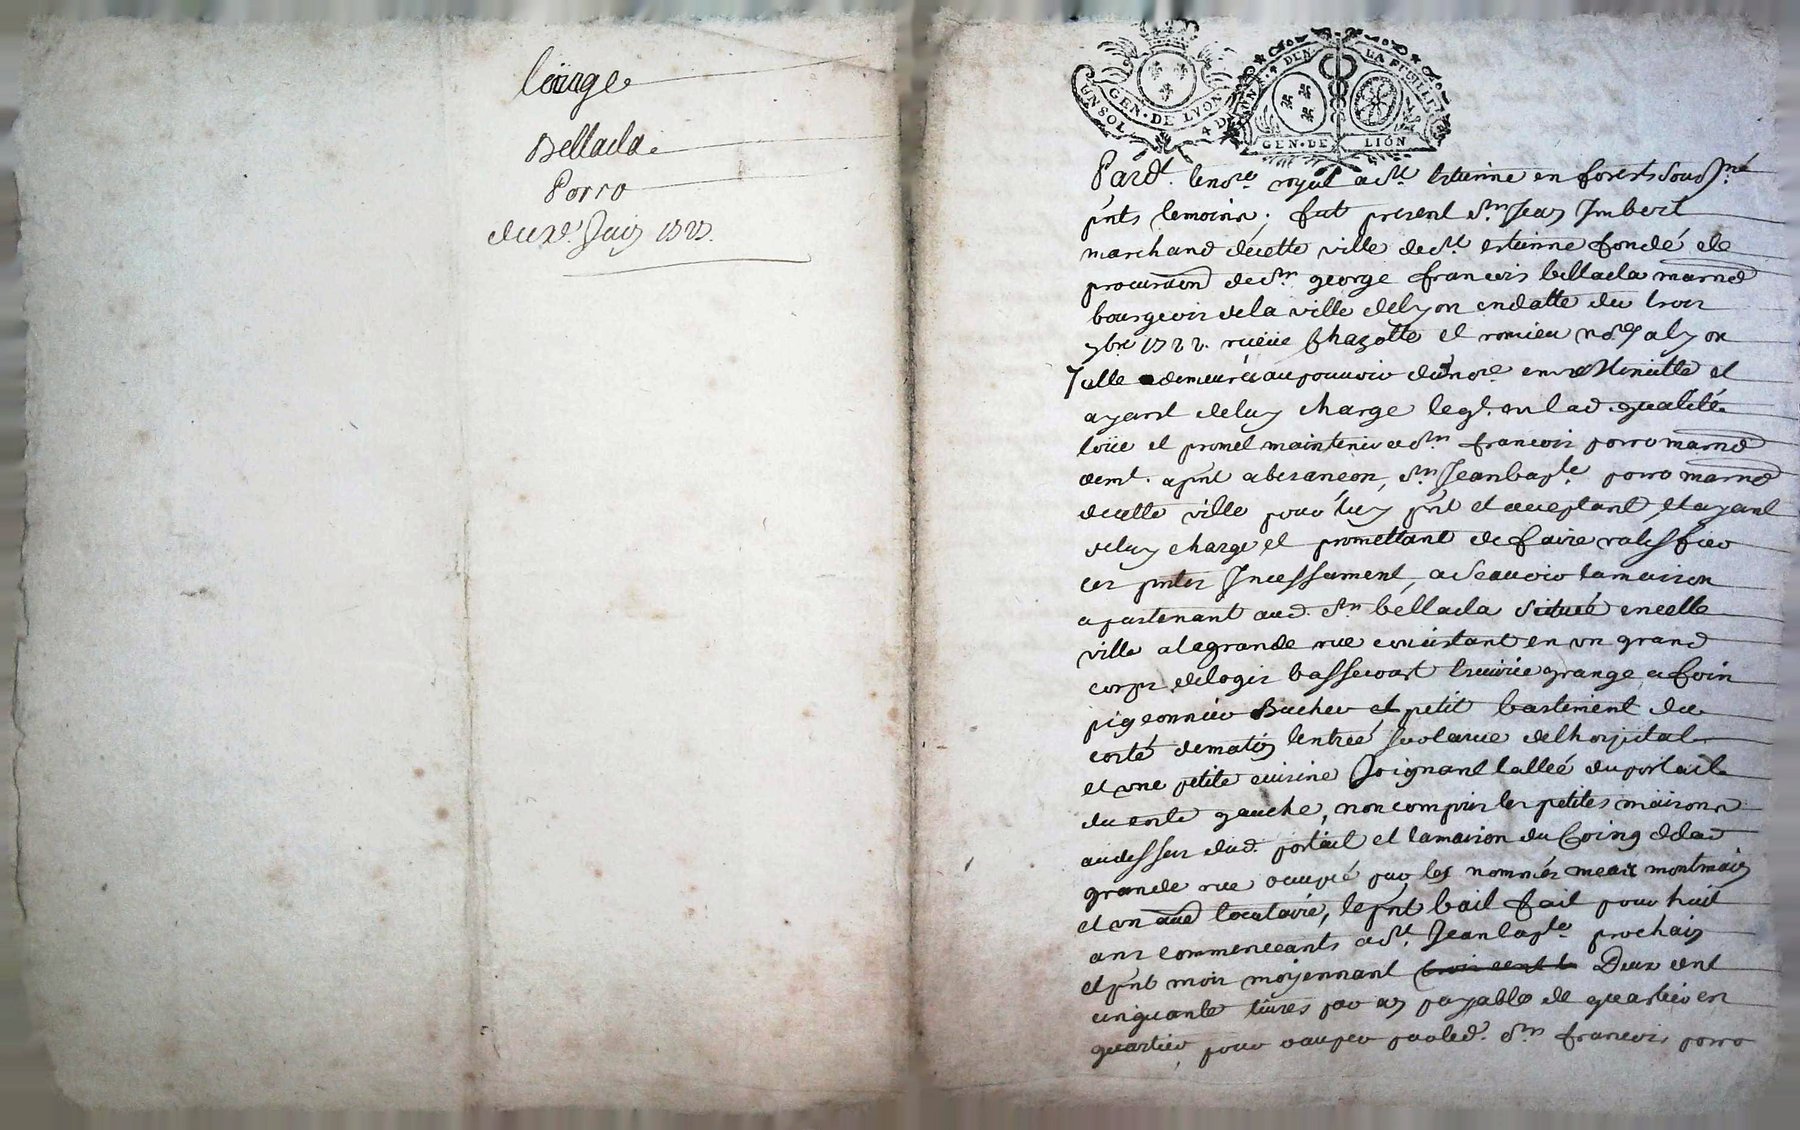 loüage
Bellacla
Porro
du xe. Juin 1723.
UN SOL
GEN · DE LYON
4 DEN
LA FEUILLE
GEN · DE LION
Pardt. le nore. royal a St. Estienne en forests sousné
pnts temoins. fut present Sr. Jean Imbert
marchand de cette ville de St. estienne fondé de
procuration de Sr. george francois bellacla marnd
bourgeois de la ville de lyon en datte du trois
9bre 1722. receüe Chazotte et romieu nores a lyon
demeurée au pouvoir du nore. en et
ayant de luy charge leql. en lad. qualité
loüe et promet maintenir a Sr. francois porro marnd
demt. apnt a besancon, Sr. Jean bapte. porro marnd
de cette ville pour luy pnt et acceptant et ayant
de luy charge et promettant de faire ratiffier
ces pntes Incessament, a scavoir la maison
apartenant aud. Sr. bellacla située en cette
ville a la grande rue consistant en un grand
corps de logis bassecourt Ecuirie grange a foin
pigeonnier Bucher et petit bastiment du
costé de matin lentrée sur la rue de lhospital
et une petite cuisine Joignant lallée du portail
du costé gauche, non compris les petites maisons
au dessus dud. portail et la maison du Coing de lad
grande rue occupée par les nommés montmain
et un autre locataire, le pnt bail fait pour huit
ans commenceants a St. Jean bapte. prochain
et pnt mois moyennant Deux cent
cinquante livres par an payable de quartier en
quartier, pour occuper par led. Sr. francois porro